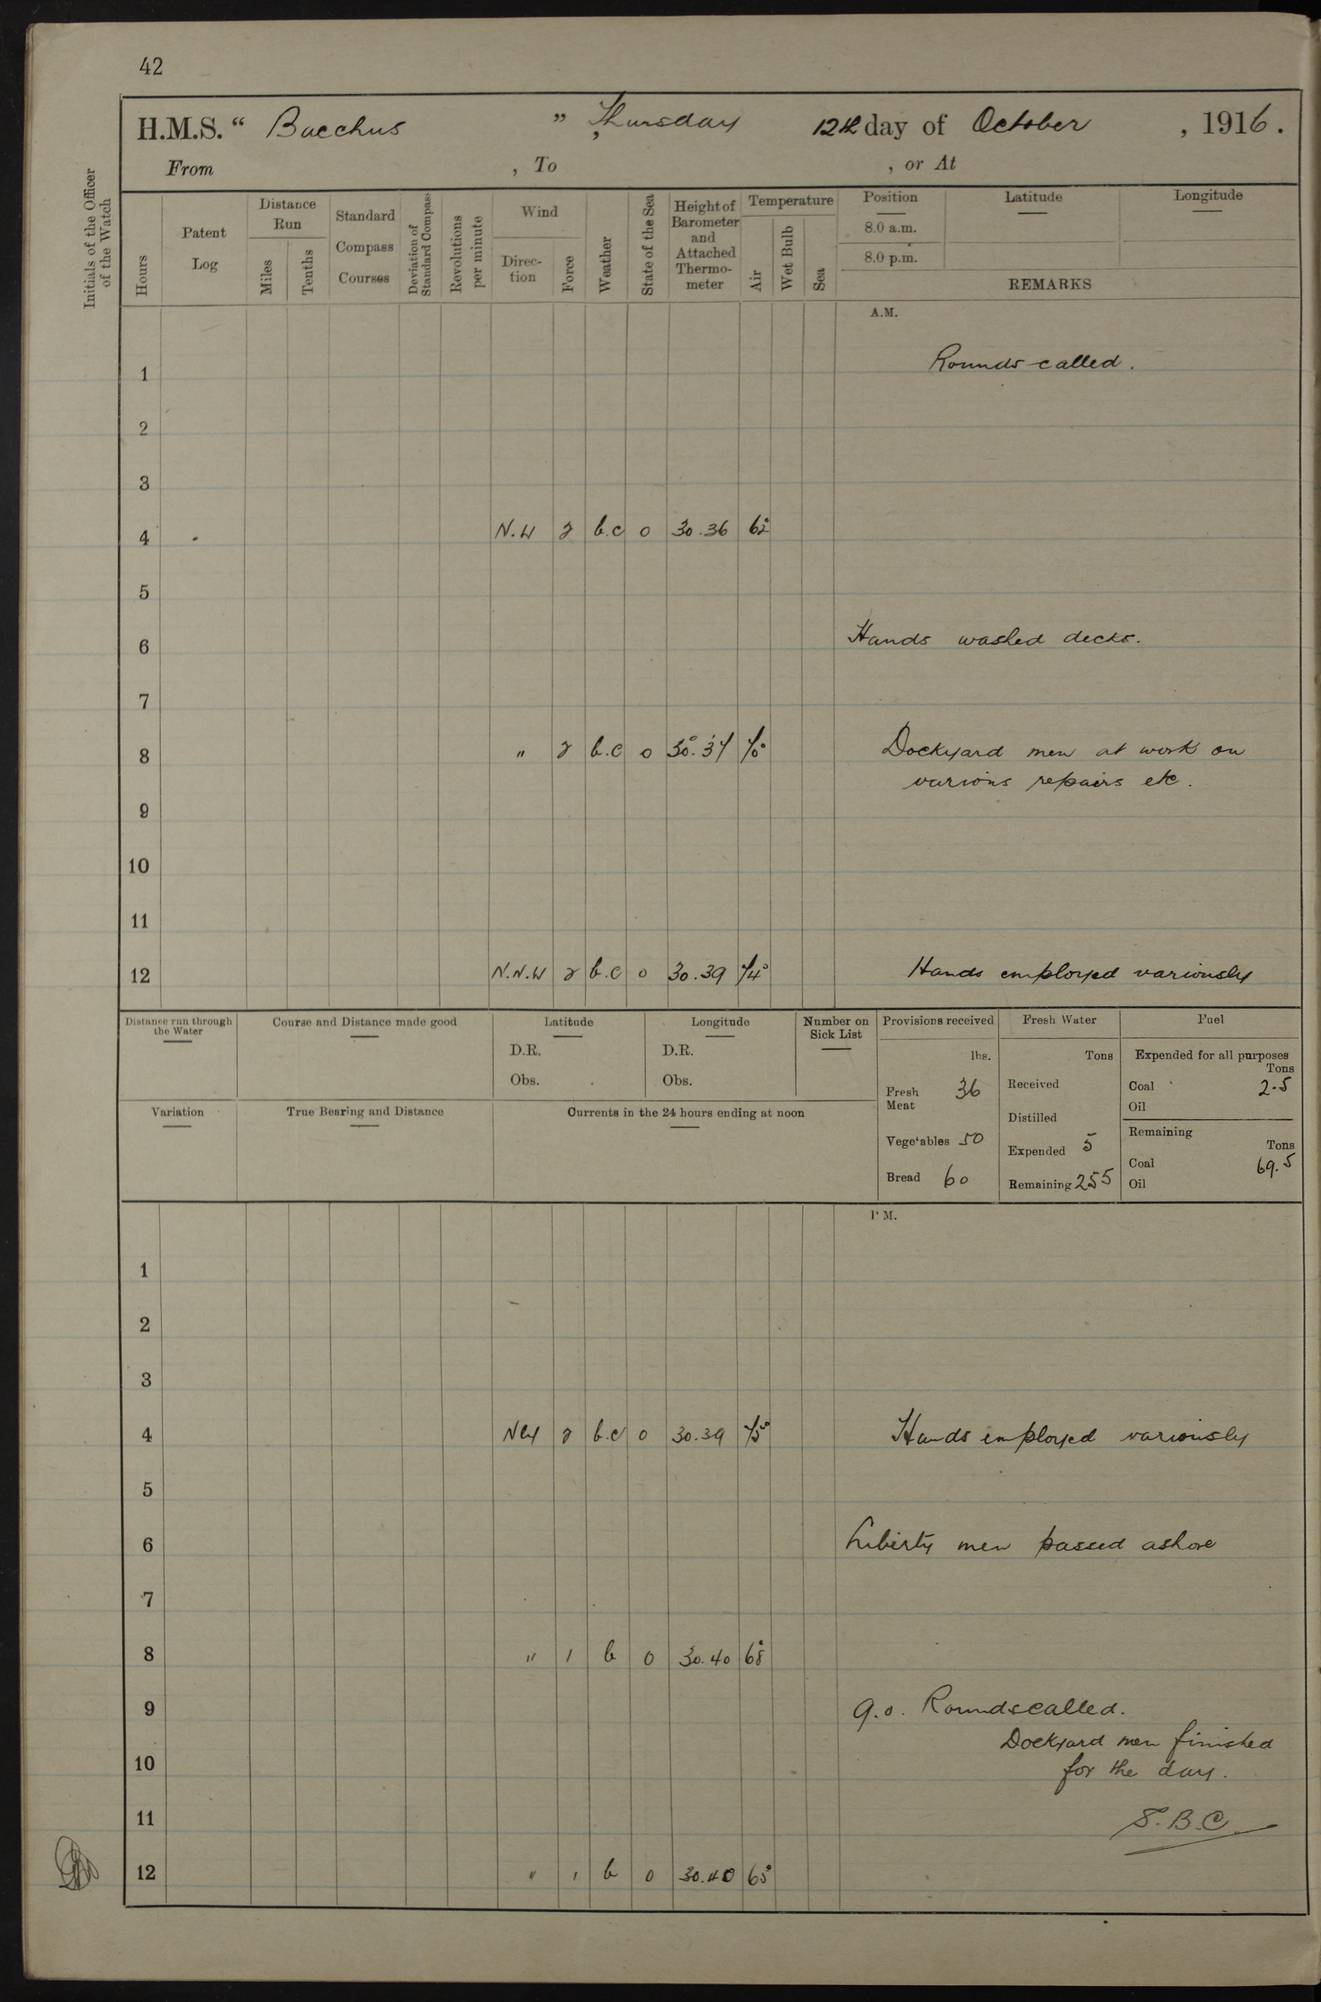 42
H.M.S. “ Bacchus ” , Thursday 12th day of October , 1916.
From , To , or At
Initials of the Officer of the Watch
Hours
Patent Log
Distance Run
Miles
Tenths
Standard Compass Courses
Deviation of Standard Compass
Revolutions per minute
Wind
Direction
Force
Weather
State of the Sea
Height of Barometer and Attached Thermometer
Temperature
Air
Wet Bulb
Sea
Position Latitude Longitude
8.0 a.m.
8.0 p.m.
REMARKS
A.M.
1 Rounds called.
2
3
4 N.W 2 b.c 0 30.36 62°
5
6 Hands washed decks.
7
8 " 2 b.c 0 30.37 70° Dockyard men at work on
various repairs etc.
9
10
11
12 N.N.W 2 b.c 0 30.39 74° Hands employed variously
Distance run through the Water
Course and Distance made good
Latitude
D.R.
Obs.
Longitude
D.R.
Obs.
Number on Sick List
Provisions received
lbs.
Fresh Meat 36
Vegetables 50
Bread 60
Fresh Water
Tons
Received
Distilled
Expended 5
Remaining 255
Fuel
Expended for all purposes
Tons
Coal 2.5
Oil
Remaining
Tons
Coal 69.5
Oil
Variation
True Bearing and Distance
Currents in the 24 hours ending at noon
P.M.
1
2
3
4 Nly 2 b.c 0 30.39 75° Hands employed variously
5
6 Liberty men passed ashore
7
8 " 1 b 0 30.40 68°
9 9.0. Rounds called.
Dockyard men finished
10 for the day.
11 S.B.C.
12 " 1 b 0 30.40 65°